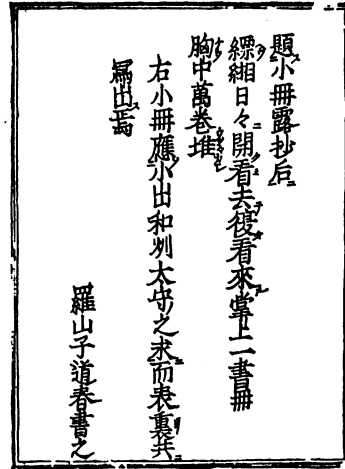 題小冊露抄后
縹緗日々開看去復看來掌上一書冊
胸中萬卷堆
右小冊應小出和刕太守之求而表裏共
冩出焉
羅山子道春書之